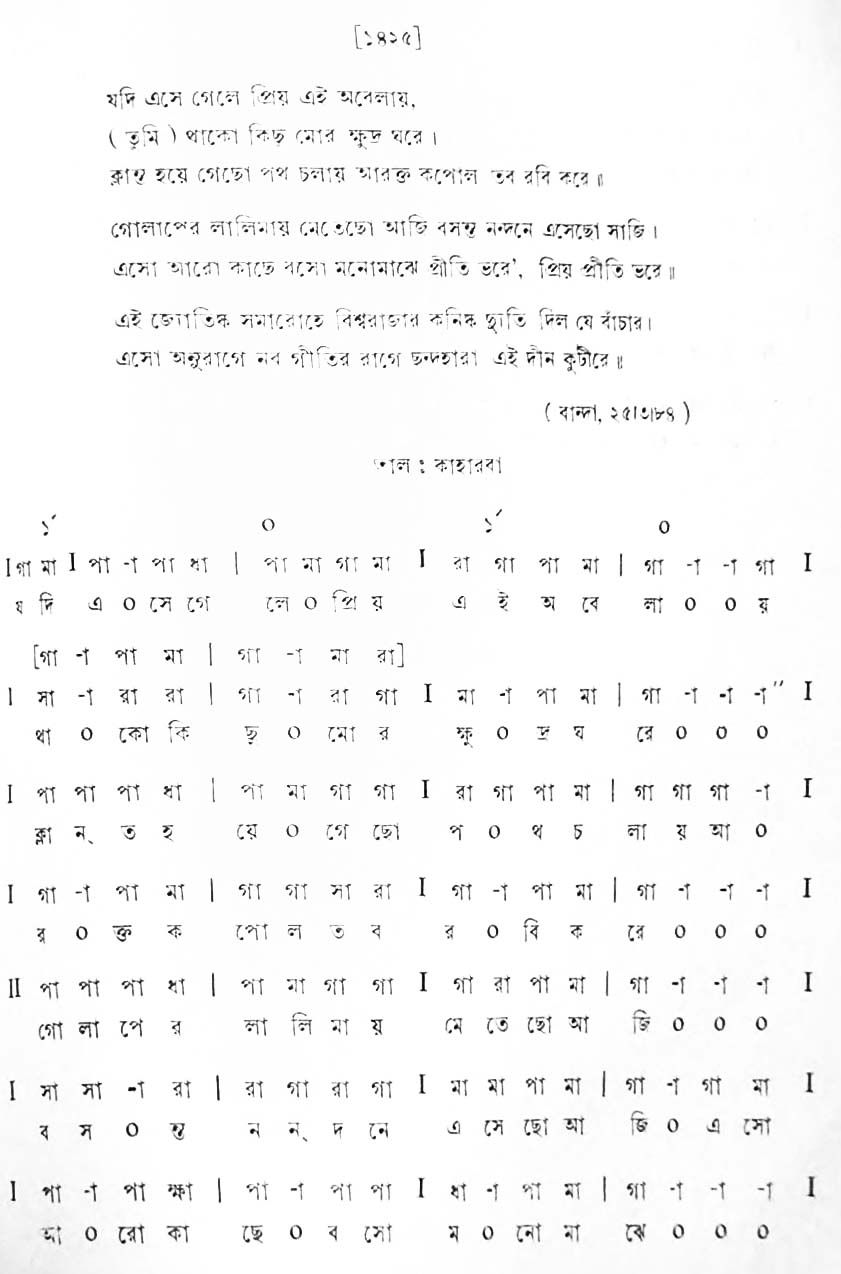 [১৪২৫]
যদি এসে গেলে প্রিয় এই অবেলায়,
( তুমি ) থাকো কিছু মোর ক্ষুদ্র ঘরে।
ক্লান্ত হয়ে গেছো পথ চলায় আরক্ত কপোল তব রবি করে॥
গোলাপের লালিমায় মেতেছো আজি বসন্ত নন্দনে এসেছো সাজি।
এসো আরো কাছে বসো মনোমাঝে প্রীতি ভরে', প্রিয় প্রীতি ভরে॥
এই জ্যোতিষ্ক সমারোহে বিশ্বরাজার কনিষ্ক দ্যুতি দিল যে বাঁচার।
এসো অনুরাগে নব গীতির রাগে ছন্দহারা এই দীন কুটীরে॥
( বান্দা, ২৫।৩।৮৪ )
তাল : কাহারবা
১´ ০ ১´ ০
I গা মা I পা -া পা ধা | পা মা গা মা I রা গা পা মা | গা -া -া গা I
য দি এ ০ সে গে লে ০ প্রি য় এ ই অ বে লা ০ ০ য়
[গা -া পা মা | গা -া মা রা]
I সা -া রা রা | গা -া রা গা I মা -া পা মা | গা -া -া -া" I
থা ০ কো কি ছু ০ মো র ক্ষু ০ দ্র ঘ রে ০ ০ ০
I পা পা পা ধা | পা মা গা গা I রা গা পা মা | গা গা গা -া I
ক্লা ন্ ত হ য়ে ০ গে ছো প ০ থ চ লা য় আ ০
I গা -া পা মা | গা গা সা রা I গা -া পা মা | গা -া -া -া I
র ০ ক্ত ক পো ল ত ব র ০ বি ক রে ০ ০ ০
II পা পা পা ধা | পা মা গা গা I গা রা পা মা | গা -া -া -া I
গো লা পে র লা লি মা য় মে তে ছো আ জি ০ ০ ০
I সা সা -া রা | রা গা রা গা I মা মা পা মা | গা -া গা মা I
ব স ০ ন্ত ন ন্ দ নে এ সে ছো আ জি ০ এ সো
I পা -া পা ক্ষা | পা -া পা পা I ধা -া পা মা | গা -া -া -া I
আ ০ রো কা ছে ০ ব সো ম ০ নো মা ঝে ০ ০ ০